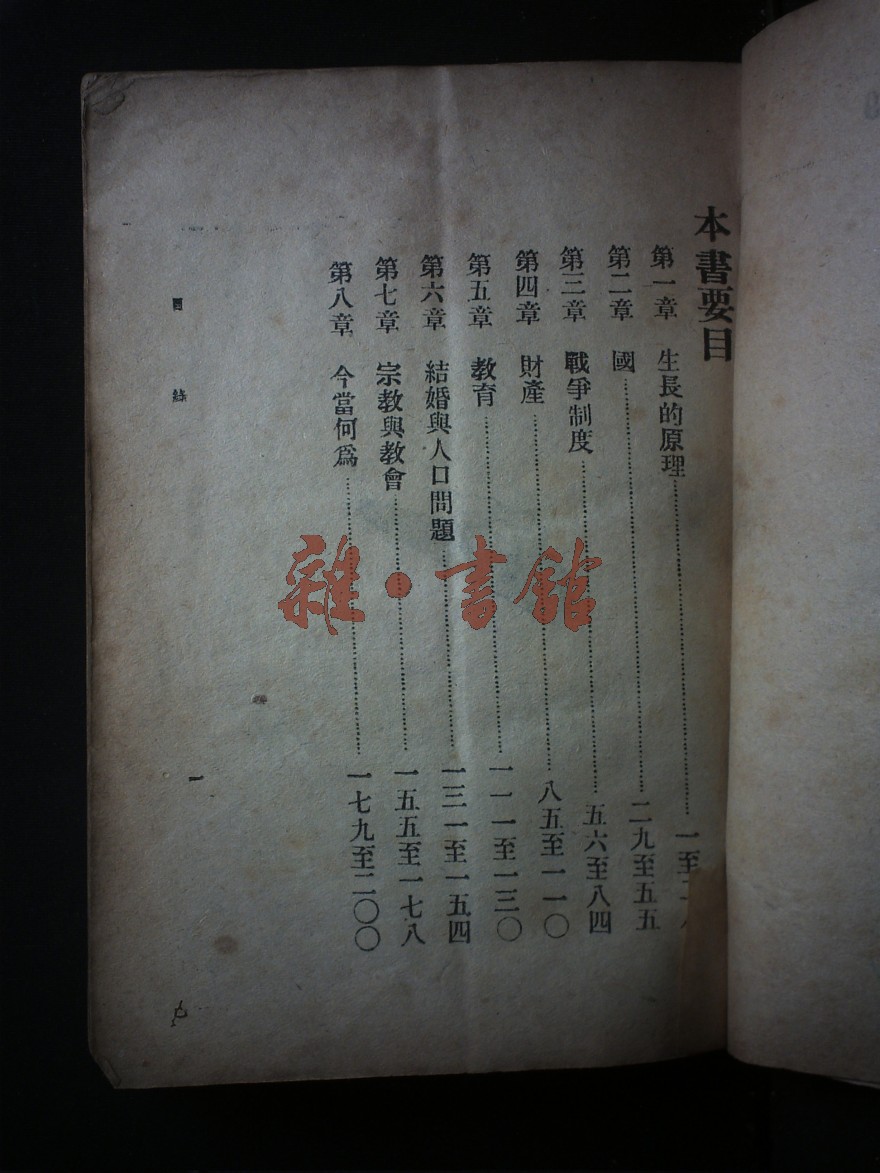 本書要目
第一章 生長的原理……一至二八
第二章 國……二九至五五
第三章 戰爭制度……五六至八四
第四章 財產……八五至一一〇
第五章 教育……一一一至一三〇
第六章 結婚與人口問題……一三一至一五四
第七章 宗教與教會……一五五至一七八
第八章 今當何爲……一七九至二〇〇
目錄
一
雜·書館